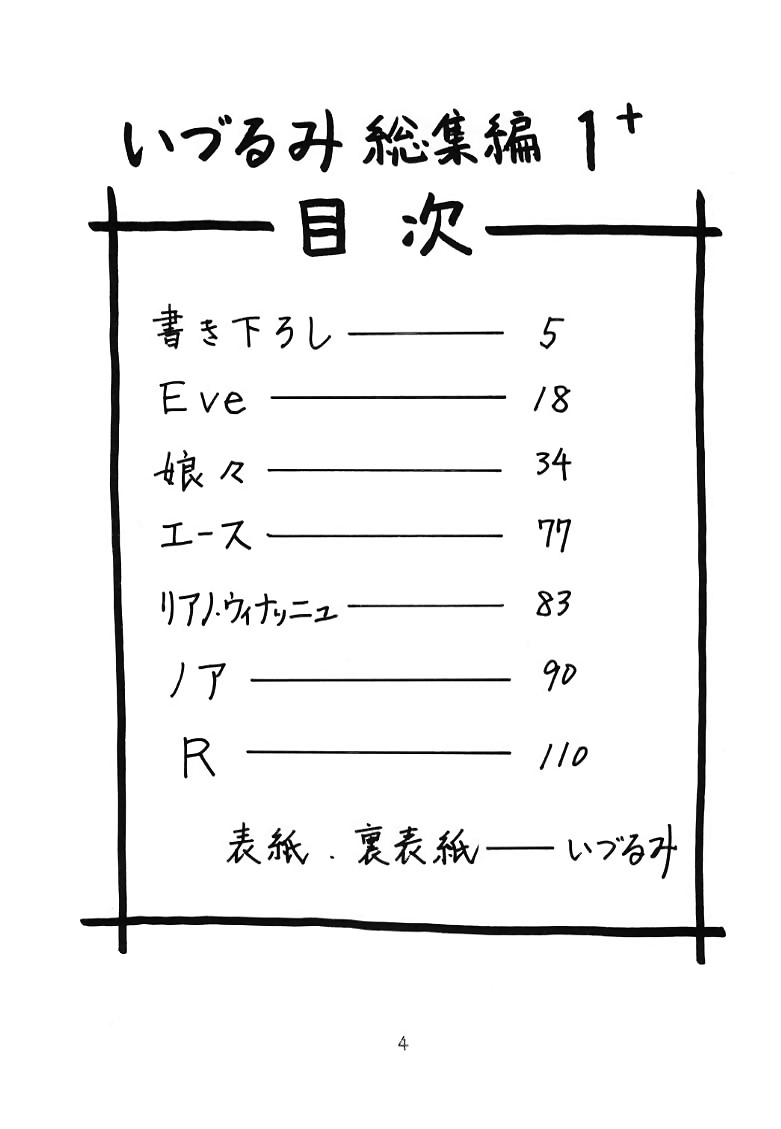 いづるみ総集編 1+
目次
書き下ろし ── 5
Eve ── 18
娘々 ── 34
エース ── 77
リアノ・ヴィナッニュ ── 83
ノア ── 90
R ── 110
表紙・裏表紙 ── いづるみ
4